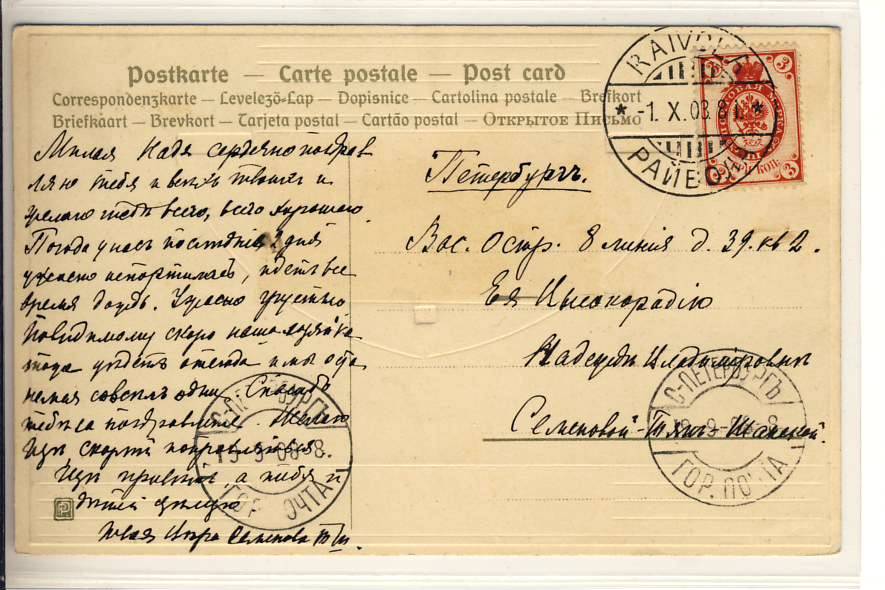 Postkarte — Carte postale — Post card
Correspondenzkarte — Levelezö-Lap — Dopisnice — Cartolina postale — Brefkort
Briefkaart — Brevkort — Tarjeta postal — Cartão postal — Открытое Письмо
RAIVOLA
-1. X. 08. 8
РАЙВОЛА
3
3
3 КОП
Милая Надя сердечно поздрав
ляю тебя и всехъ твоихъ и
желаю тебѣ всего, всего хорошаго.
Погода у насъ последніе 2 дня
ужасно испортилась, идетъ все
время дождь. Ужасно грустно
Повидимому скоро наша хозяйка
тоже уѣдетъ отсюда и мы оста
немся совсемъ одни. Спасибо
тебѣ за поздравление. Желаю
Цѣ скорей поправиться
привѣтъ, а тебя и
дѣтей целую
твоя Вѣра Семенова Т Ш.
Петербургъ.
Вас. Остр. 8 линія д. 39. кв 2.
Ея Высокородію
Надеждѣ Владиміровнѣ
Семеновой-Тянъ-Шанской.
С-ПЕТЕРБУРГЪ
19-9-08-8.
ГОР. ПОЧТА
С-ПЕТЕРБУРГЪ
ГОР. ПОЧТА